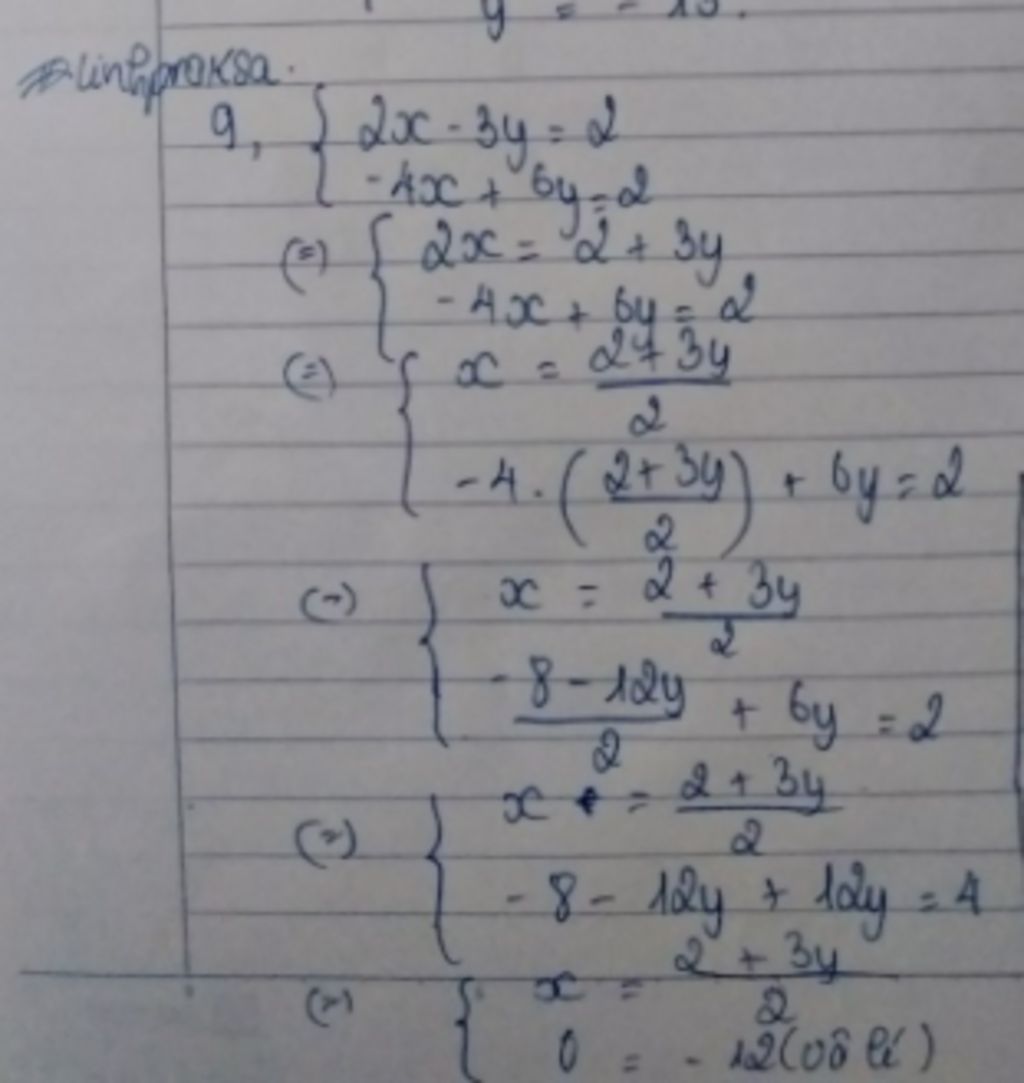 y = - 15.
linhproksa.
9, { 2x - 3y = 2
-4x + 6y = 2
(=) { 2x = 2 + 3y
-4x + 6y = 2
(=) { x = (2 + 3y)/2
-4 . ((2 + 3y)/2) + 6y = 2
(=) { x = (2 + 3y)/2
(-8 - 12y)/2 + 6y = 2
(=) { x = (2 + 3y)/2
-8 - 12y + 12y = 4
(=) { x = (2 + 3y)/2
0 = -12 (vô lí)